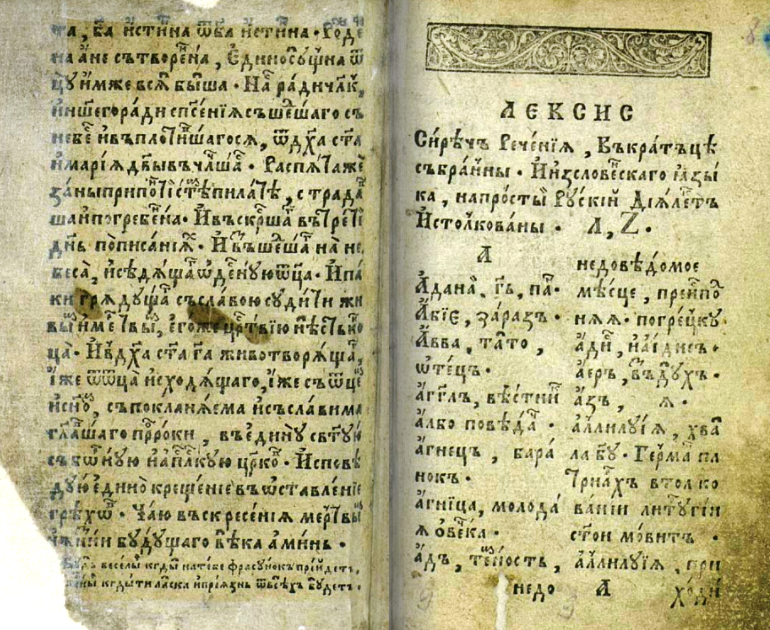 та, бга истинна ѿ бга истинна · Рожде
на а не сътворенна, Единосущна ѿ
цу имже вся быша · Нас ради чл҃къ,
и нашего ради спсенїя съшедшаго съ
небесъ и въплотившагося, ѿ дх҃а ста
и марїя дв҃ы въчл҃чьша · Распята же
за ны при понтїистѣмь пилатѣ, страдав
ша и погребена · И въскр҃сша въ третїи
днь по писанїих · И възшедша на не
беса, и сѣдяща ѡдесную ѿца · И па
ки грядуща съ славою судити жи
вым и мертвым, егоже црствїю нѣсть кон
ца · И въ дх҃а ста га животворяща,
иже ѿ ѿца исходящаго, иже съ ѿцем
и сном, съпокланяема и съславима
гл҃авшаго прроки, въ едину свтую
съборную и апслкую црковь · Исповѣ
дую едино крещение въ ѡставленїе
грѣхѡв · Чаю въскресения мертвых
и жизни будущаго вѣка аминь ·
Будь веселый кгды на тебе фрасунок прїйдетъ,
кгды ти ласка и прїязнь ѿ всѣхъ будетъ ·
ЛЕКСИС
Сирѣчъ Реченїя, Въкратъцѣ
събранны · И из словенскаго язы
ка, на просты Рускїй Дїялектъ
Истолкованы · Л, Z ·
А
Аданаі, гь, па
Абїе, заразъ ·
Авва, тато,
ѡтецъ ·
Аггл҃ъ, вѣстник
албо повѣдач ·
Агнецъ, бара
нок ·
Агница, молода
я ѡвечка ·
Адъ, темность,
недо
недовѣдомое
мѣсце, преиспо
няя · погрецку
адис, и аидис ·
Аеръ, въздухъ ·
Азъ, я ·
Аллилуїя, хва
ла бгу · Герман па
трїархъ в толко
ванїи литургїи
стои мовитъ ·
Аллилуїя, при
А
ходи